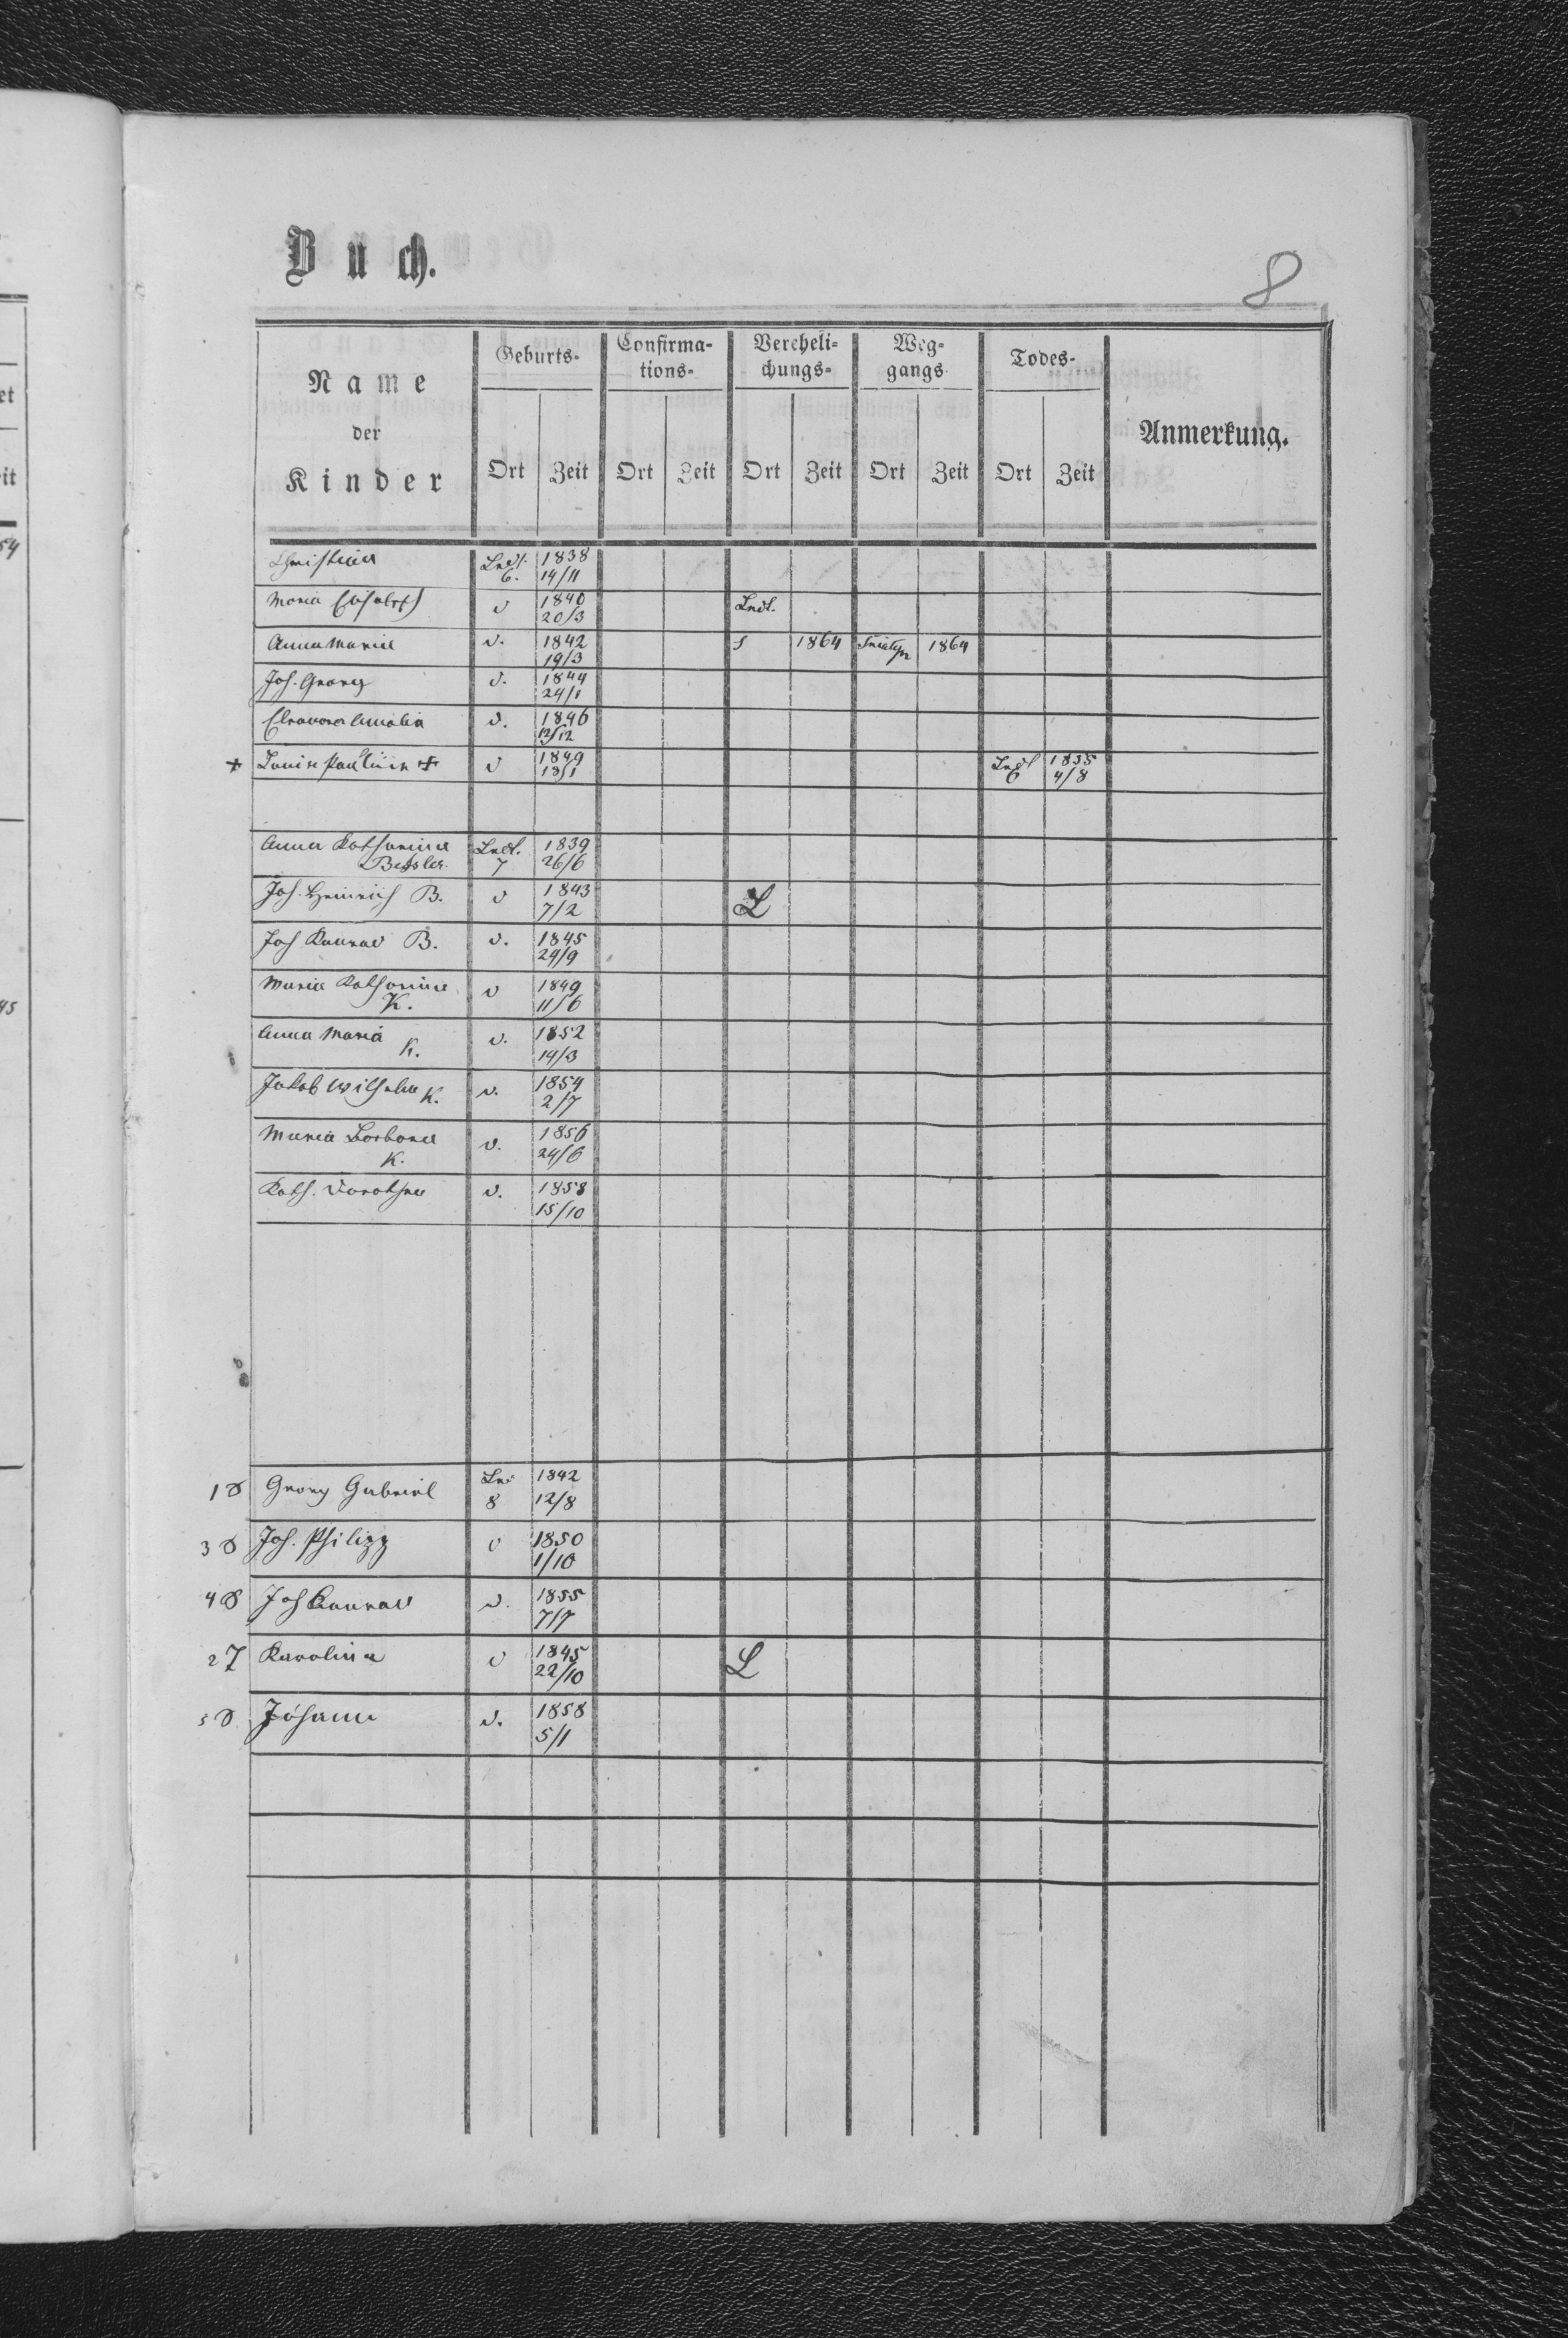 54
45
Buch.
8
Name der Kinder Geburts- Confirma-tions- Vereheli=chungs= Weg=gangs Todes- Anmerkung.
Ort Zeit Ort Zeit Ort Zeit Ort Zeit Ort Zeit
Christina Lndl. 6. 1838 14/11
Maria Elisabeth v 1840 20/3 Lndl.
Anna Maria v. 1842 19/3 1864 1864
Joh. Georg v. 1844 24/1
Eleonora Amalia v. 1846 12/12
+ Louise Pauline + v 1849 18/1 Lndl 6 1855 4/8
Anna Katharina Lndl. 1839
Bessler. 7 26/6
Joh. Heinrich B. v 1843 7/2 L
Joh Konrad B. v. 1845 24/9
Maria Katharina v 1849
K. 11/6
Anna Maria K. v. 1852 14/3
Jakob Wilhelm K. v. 1854 2/7
Maria Barbara v. 1856
K. 24/6
Kath. Dorothea v. 1858 15/10
1 Georg Gabriel 8 1842 12/8
3 Joh. Philipp v 1850 1/10
4 Joh Konrad v. 1855 7/7
2 Karolina v 1845 22/10 L
5 Johann v. 1858 5/1